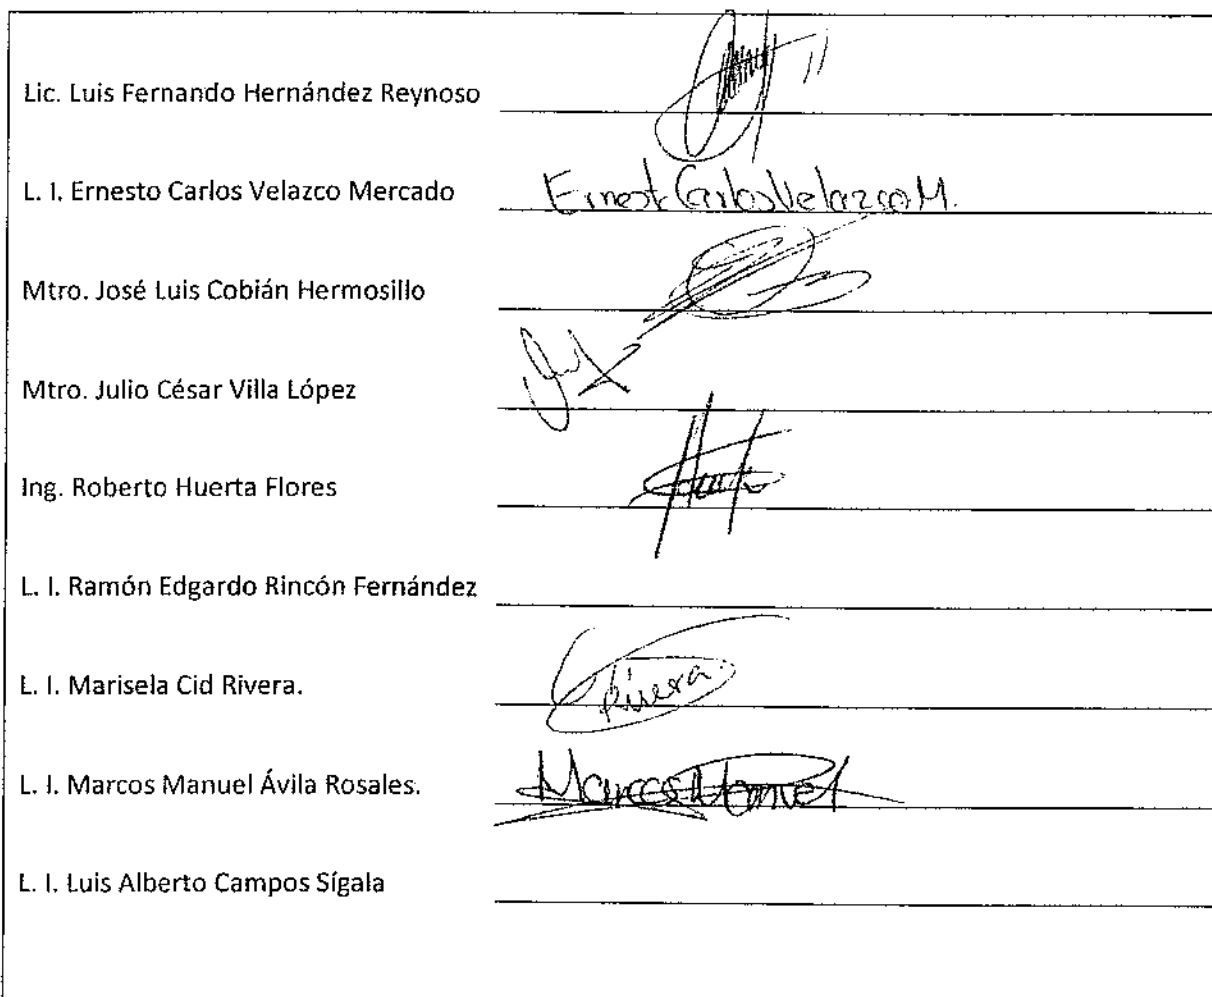 Lic. Luis Fernando Hernández Reynoso
L. I. Ernesto Carlos Velazco Mercado Ernesto Carlos Velazco M.
Mtro. José Luis Cobián Hermosillo
Mtro. Julio César Villa López
Ing. Roberto Huerta Flores
L. I. Ramón Edgardo Rincón Fernández
L. I. Marisela Cid Rivera. Rivera
L. I. Marcos Manuel Ávila Rosales. Marcos Manuel
L. I. Luis Alberto Campos Sígala